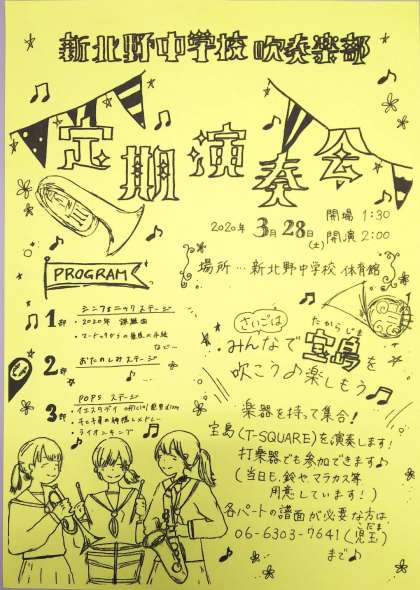 新北野中学校 吹奏楽部
定期演奏会
2020年 3月28日(土)
開場 1:30
開演 2:00
場所…新北野中学校 体育館
PROGRAM
1部 シンフォニックステージ
・2020年 課題曲
・マードックからの最後の手紙
など…
2部 おたのしみステージ
3部 POPS ステージ
・イエスタデイ official髭男dism
・ライオンキング
さいごは
みんなで宝島を
たからじま
吹こう♪楽しもう
楽器を持って集合!
宝島(T-SQUARE)を演奏します!
打楽器でも参加できます♪
(当日も、鈴やマラカス等
用意しています!)
各パートの譜面が必要な方は
06-6303-7641(児玉)
こだま
まで♪